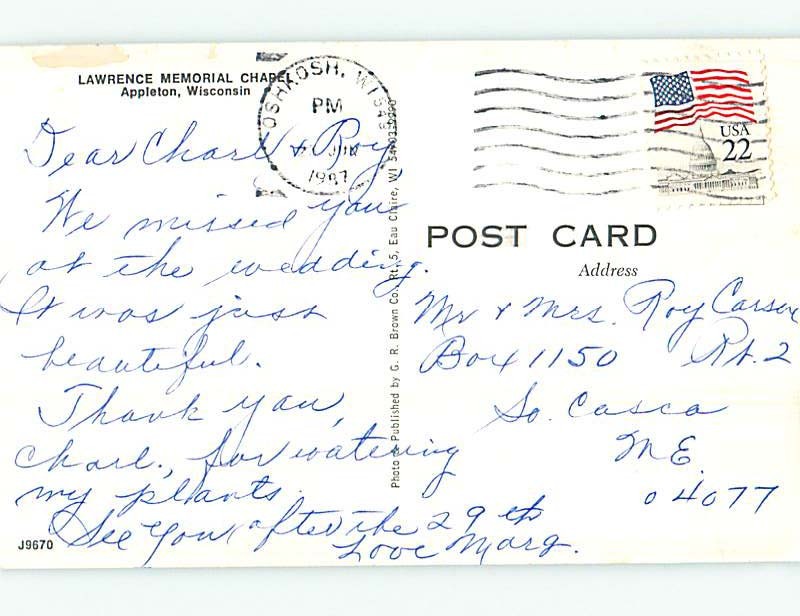 LAWRENCE MEMORIAL CHAPEL
Appleton, Wisconsin
OSHKOSH, WI 549
PM
JUN
1987
USA
22
Dear Charl & Roy,
We missed you
at the wedding.
It was just
beautiful.
Thank you,
Charl., for watering
my plants.
See you after the 29th
Love Marg.
J9670
Photo & Published by G. R. Brown Co., Rt. 5, Eau Claire, WI
POST CARD
Address
Mr & Mrs. Roy Carson
Box 1150 Rt. 2
So. Casco
ME.
04077